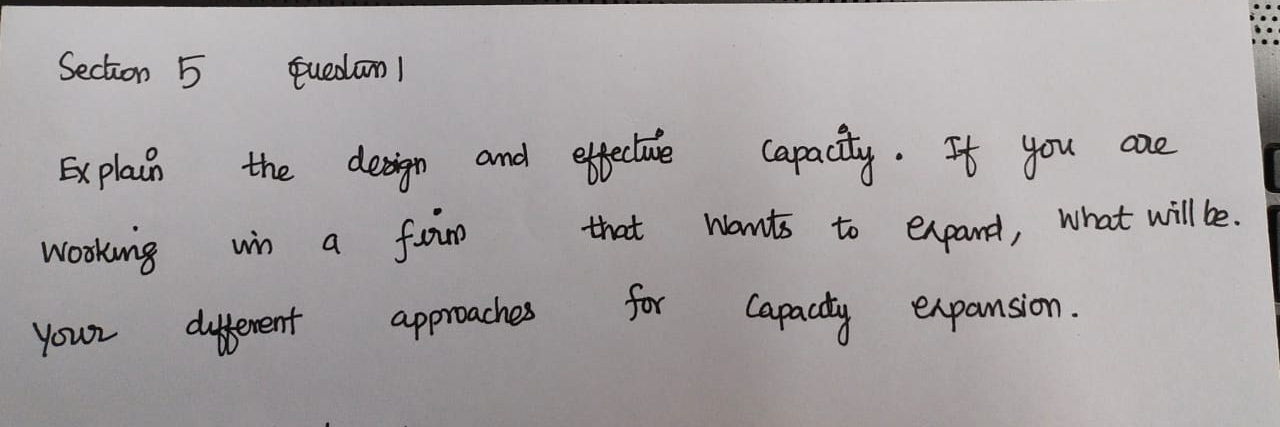 Section 5 Question 1
Explain the design and effective capacity. If you are
working in a firm that wants to expand, what will be.
your different approaches for capacity expansion.